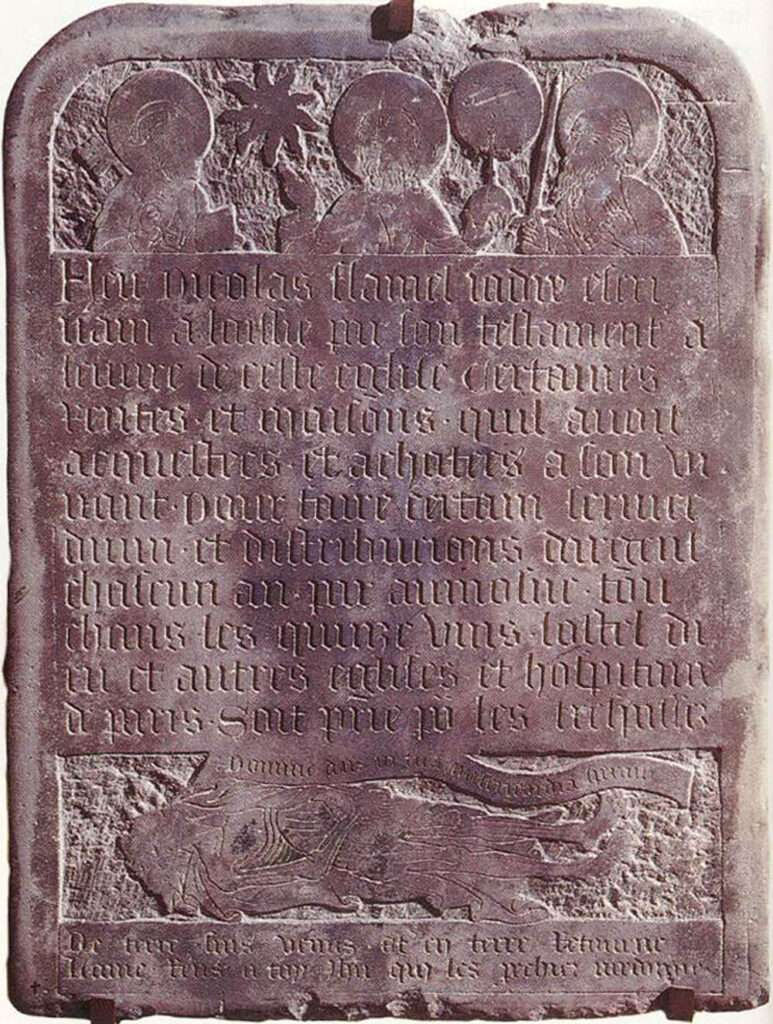 Feu Nicolas flamel iadis escri
uain a laissie par son testament a
leuure de ceste eglise Certaines
rentes et maisons quil auoit
acquestees et achatees a son vi
uant pour faire certain seruice
diuin et distribucions dargent
chascun an par aumosne tou
chans les quinze vins lostel di
eu et autres eglises et hospitaux
de paris Soit prie po les trespassez
Domine
De terre suis venus et en terre Retourne
Lame Rens a toy qui les pechiez